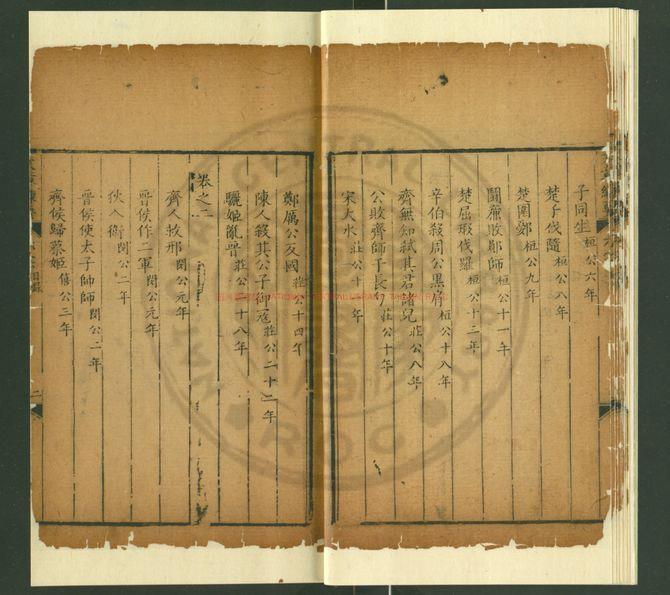 子同生桓公六年
楚子伐隨桓公八年
楚圍鄾桓公九年
鬬廉敗鄖師桓公十一年
楚屈瑕伐羅桓公十三年
辛伯殺周公黑肩桓公十八年
齊無知弒其君諸兒莊公八年
公敗齊師于長勺莊公十年
宋大水莊公十一年
鄭厲公反國莊公十四年
陳人殺其公子御寇莊公二十二年
驪姬亂晉莊公二十八年
卷之二
齊人救邢閔公元年
晉侯作二軍閔公元年
狄入衛閔公二年
晉侯使太子帥師閔公二年
齊侯歸蔡姬僖公三年